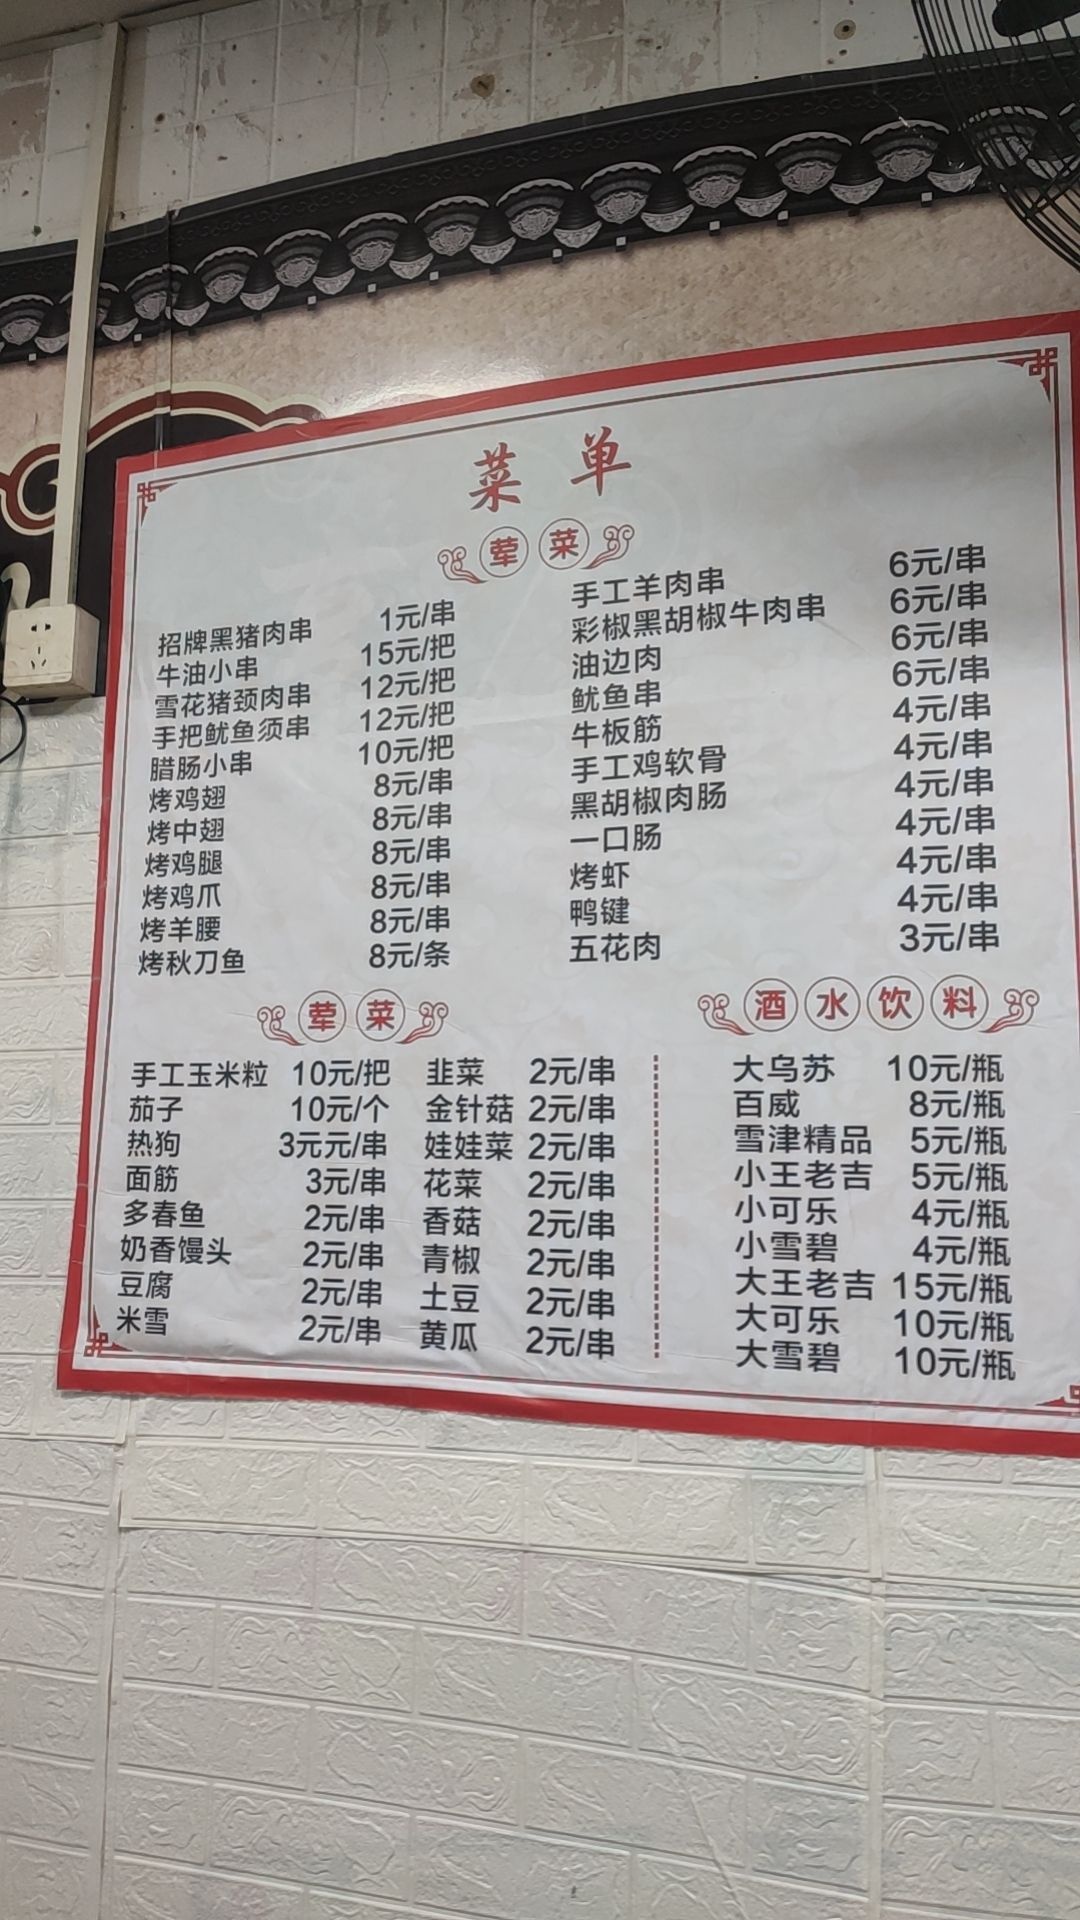 菜单
荤菜
招牌黑猪肉串 1元/串
牛油小串 15元/把
雪花猪颈肉串 12元/把
手把鱿鱼须串 12元/把
腊肠小串 10元/把
烤鸡翅 8元/串
烤中翅 8元/串
烤鸡腿 8元/串
烤鸡爪 8元/串
烤羊腰 8元/串
烤秋刀鱼 8元/条
手工羊肉串 6元/串
彩椒黑胡椒牛肉串 6元/串
油边肉 6元/串
鱿鱼串 6元/串
牛板筋 4元/串
手工鸡软骨 4元/串
黑胡椒肉肠 4元/串
一口肠 4元/串
烤虾 4元/串
鸭键 4元/串
五花肉 3元/串
荤菜
手工玉米粒 10元/把
茄子 10元/个
热狗 3元元/串
面筋 3元/串
多春鱼 2元/串
奶香馒头 2元/串
豆腐 2元/串
米雪 2元/串
韭菜 2元/串
金针菇 2元/串
娃娃菜 2元/串
花菜 2元/串
香菇 2元/串
青椒 2元/串
土豆 2元/串
黄瓜 2元/串
酒水饮料
大乌苏 10元/瓶
百威 8元/瓶
雪津精品 5元/瓶
小王老吉 5元/瓶
小可乐 4元/瓶
小雪碧 4元/瓶
大王老吉 15元/瓶
大可乐 10元/瓶
大雪碧 10元/瓶